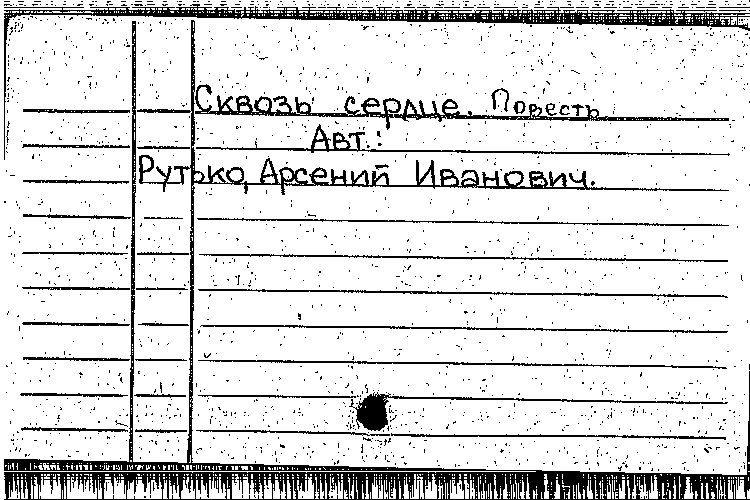 Сквозь сердце. Повесть
Авт.:
Рутько, Арсений Иванович.